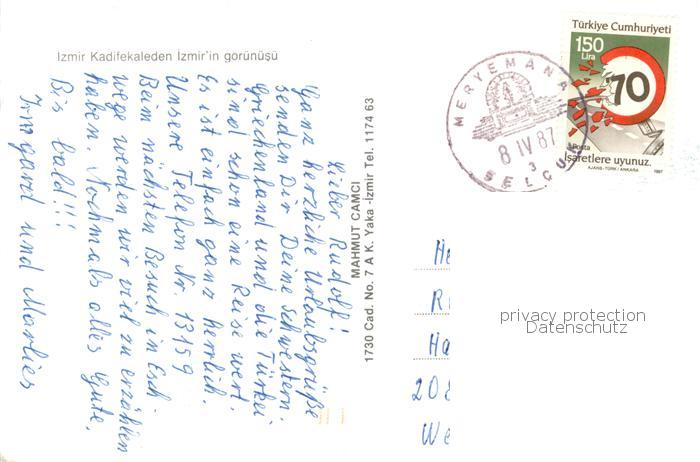 Izmir Kadifekaleden İzmir'in görünüşü
Lieber Rudolf!
Ganz herzliche Urlaubsgrüße
senden Dir Deine Schwestern.
Griechenland und die Türkei
sind schon eine Reise wert.
Es ist einfach ganz herrlich.
Unsere Telefon Nr. 13159
Beim nächsten Besuch in Esch-
wege werden wir viel zu erzählen
haben. Nochmals alles Gute.
Bis bald!!!
Irmgard und Marlies
MAHMUT CAMCI
1730 Cad. No. 7 A K. Yaka-İzmir Tel. 1174 63
MERYEMANA
8 IV 87
3
SELÇUK
Türkiye Cumhuriyeti
150
Lira
70
Posta
İşaretlere uyunuz.
AJANS-TÜRK / ANKARA
1987
He
R
Ha
208
We
privacy protection
Datenschutz